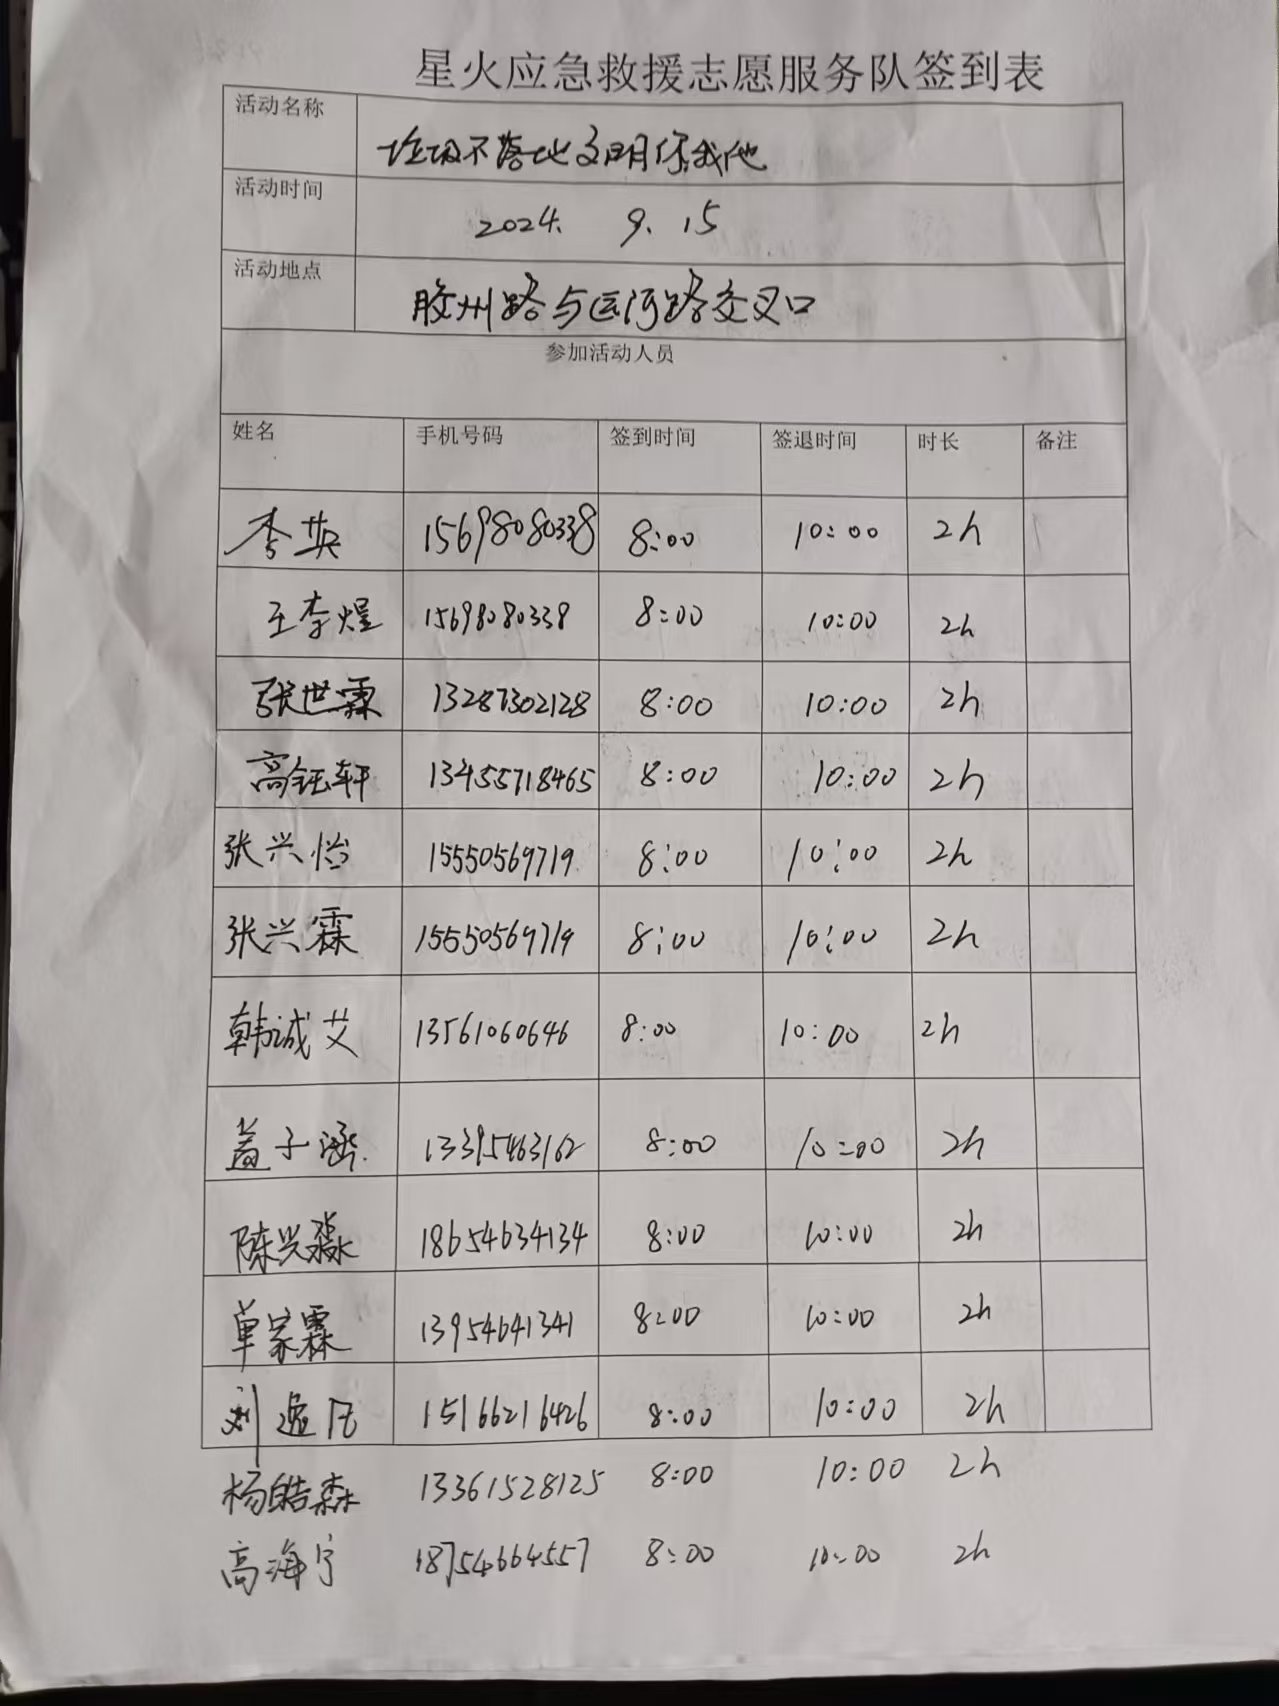 星火应急救援志愿服务队签到表
活动名称 垃圾不落地文明你我他
活动时间 2024. 9. 15
活动地点 胶州路与运河路交叉口
参加活动人员
姓名 手机号码 签到时间 签退时间 时长 备注
李英 15698080338 8:00 10:00 2h
王李煜 15698080338 8:00 10:00 2h
张世霖 13287302128 8:00 10:00 2h
高钰轩 13455718465 8:00 10:00 2h
张兴怡 15550569719 8:00 10:00 2h
张兴霖 15550569719 8:00 10:00 2h
韩诚艾 13561060646 8:00 10:00 2h
盖子涵 13395463162 8:00 10:00 2h
陈兴淼 18654634134 8:00 10:00 2h
单家霖 13954641341 8:00 10:00 2h
刘逸凡 15166216426 8:00 10:00 2h
杨皓森 13361528125 8:00 10:00 2h
高海宁 18754664557 8:00 10:00 2h